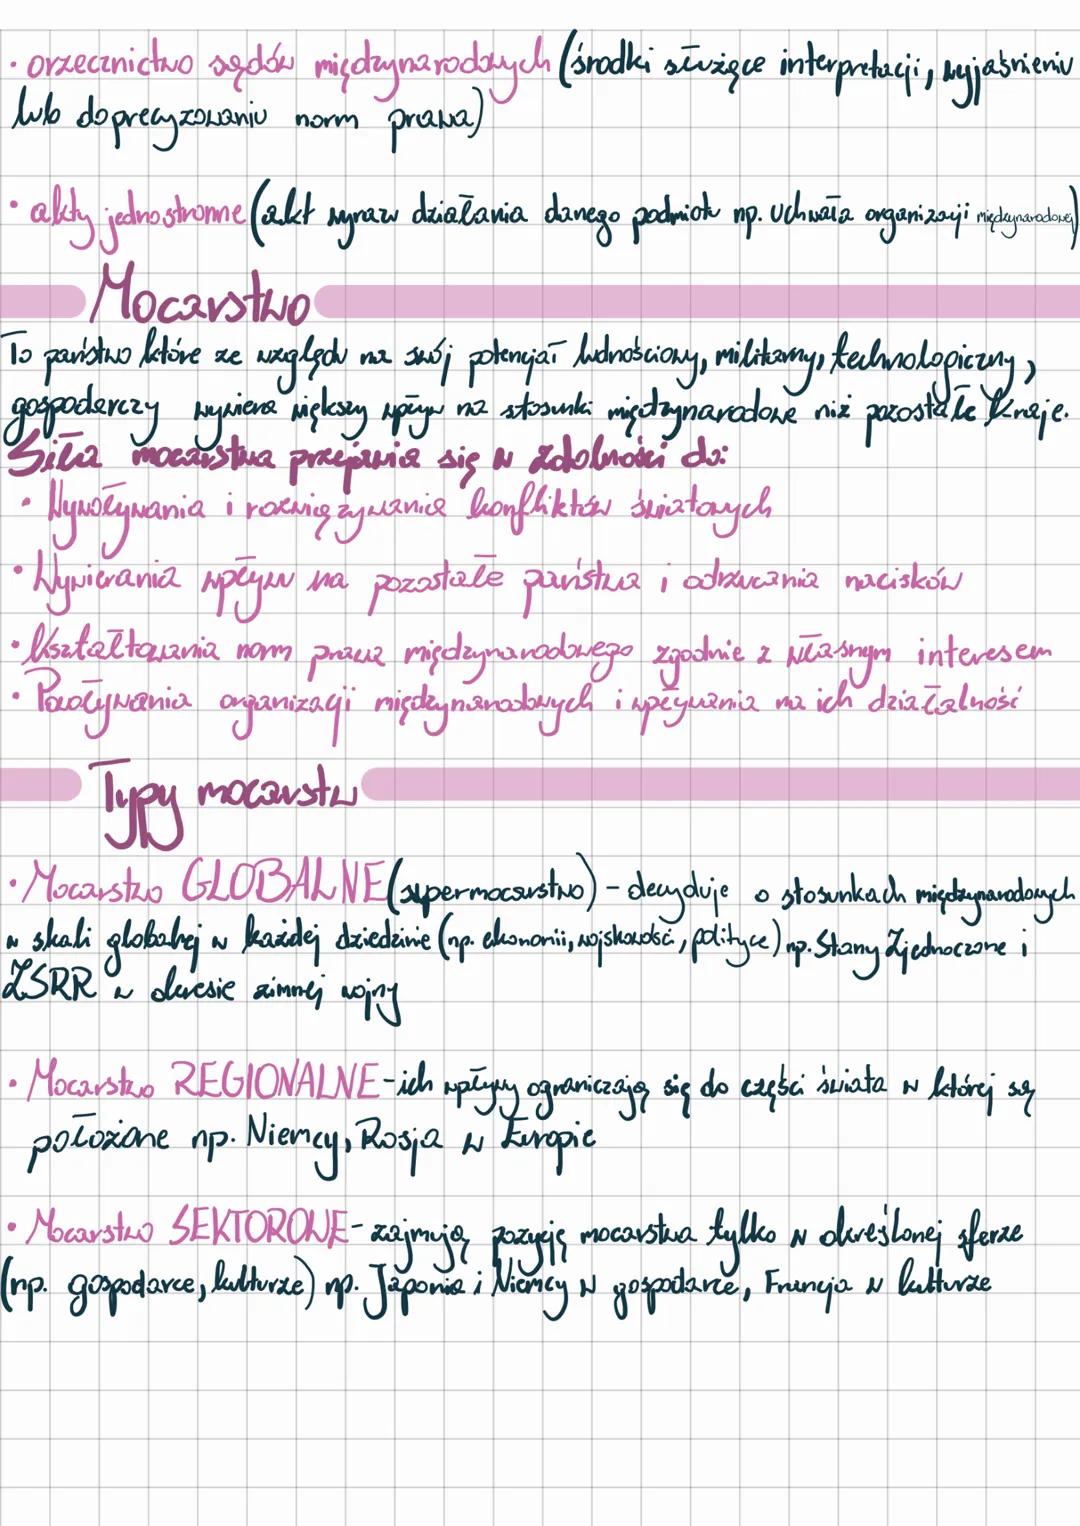 • orzecznictwo sądów międzynarodowych (środki służące interpretacji, wyjaśnieniu
lub doprecyzowaniu norm prawa)
• akty jednostronne (akt wyraw działania danego podmiotu np. uchwała organizacji międzynarodowej)
Mocarstwo
To państwo które ze względu na swój potencjał ludnościowy, militarny, technologiczny,
gospodarczy wywiera większy wpływ na stosunki międzynarodowe niż pozostałe kraje.
Siła mocarstwa przejawia się w zdolności do:
• Wywoływania i rozwiązywania konfliktów światowych
• Wywierania wpływu na pozostałe państwa i odrzucania nacisków
• Kształtowania norm prawa międzynarodowego zgodnie z własnym interesem
• Powoływania organizacji międzynarodowych i wpływania na ich działalność
Typy mocarstw
• Mocarstwo GLOBALNE (supermocarstwo) - decyduje o stosunkach międzynarodowych
w skali globalnej w każdej dziedzinie (np. ekonomii, wojskowości, polityce) np. Stany Zjednoczone i
ZSRR w okresie zimnej wojny
• Mocarstwo REGIONALNE - ich wpływy ograniczają się do części świata w której są
położone np. Niemcy, Rosja w Europie
• Mocarstwo SEKTOROWE - zajmują pozycję mocarstwa tylko w określonej sferze
(np. gospodarce, kulturze) np. Japonia i Niemcy w gospodarce, Francja w kulturze